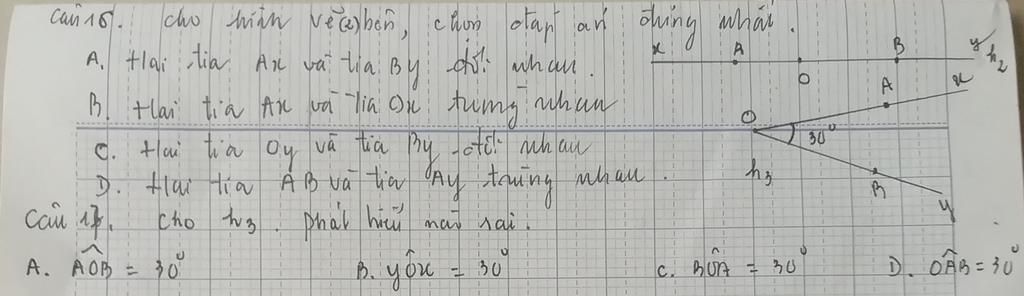 Câu 16. Cho hình vẽ (2) bên, chọn đáp án đúng nhất.
A. Hai tia Ax và tia By đối nhau.
B. Hai tia Ax và tia Ox trùng nhau
C. Hai tia Oy và tia By đối nhau
D. Hai tia AB và tia Ay trùng nhau.
x A O B y h2
O A x 30° B y h3
Câu 17. Cho h3. phát biểu nào sai.
A. AÔB = 30° B. yÔx = 30° C. BÔA = 30° D. OÂB = 30°